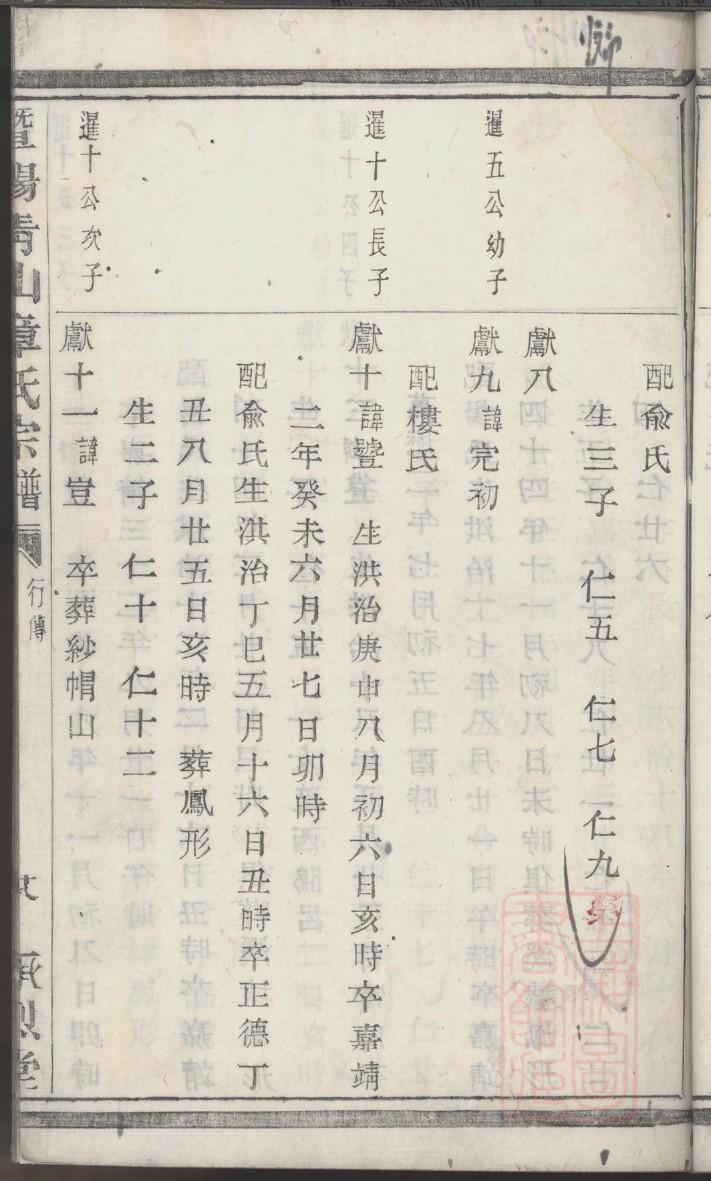 配俞氏
生三子　仁五　仁七　仁九
獻八
暹五公幼子
獻九諱完初
配樓氏
暹十公長子
獻十諱䇺　生洪治庚申八月初六日亥時卒嘉靖
二年癸未六月廿七日卯時
配俞氏生洪治丁巳五月十六日丑時卒正德丁
丑八月廿五日亥時　葬鳳形
生二子　仁十　仁十二
暹十公次子
獻十一諱豈　卒葬紗帽山
暨陽青山章氏宗譜　行傳　承烈堂